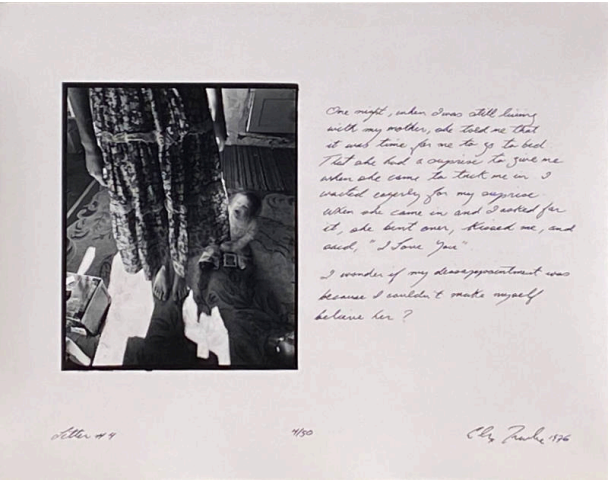 One night, when I was still living
with my mother, she told me that
it was time for me to go to bed.
That she had a surprise to give me
when she came to tuck me in. I
waited eagerly for my suprise.
When she came in and I asked for
it, she bent over, kissed me, and
said, "I Love You".
I wonder if my disappointment was
because I couldn't make myself
believe her?
Letter #4
4/50
1976